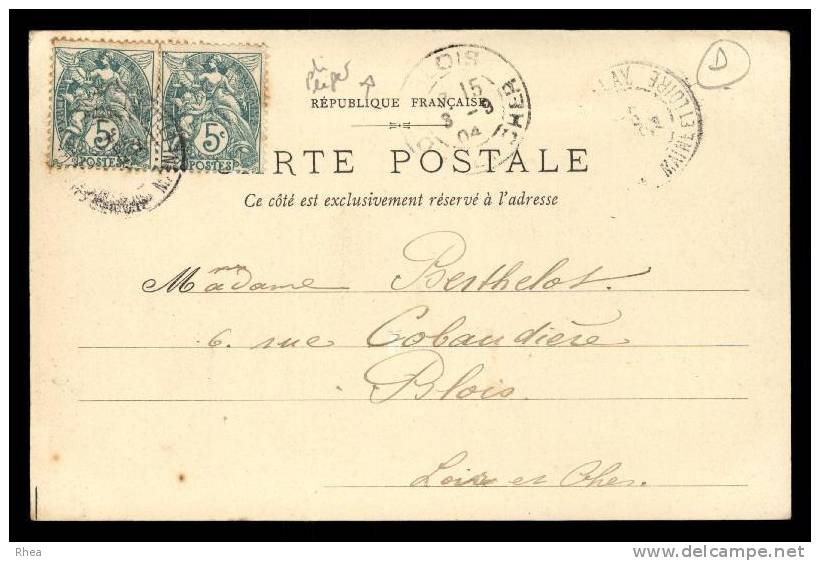 5c 5c
POSTES POSTES
BLOIS
7 15
3 - 9
04
CHER
MAINE ET LOIRE
D
RÉPUBLIQUE FRANÇAISE
CARTE POSTALE
Ce côté est exclusivement réservé à l'adresse
Madame Berthelot.
6. rue Cobaudière
Blois.
Loir et Cher.
Rhea
www.delcampe.net